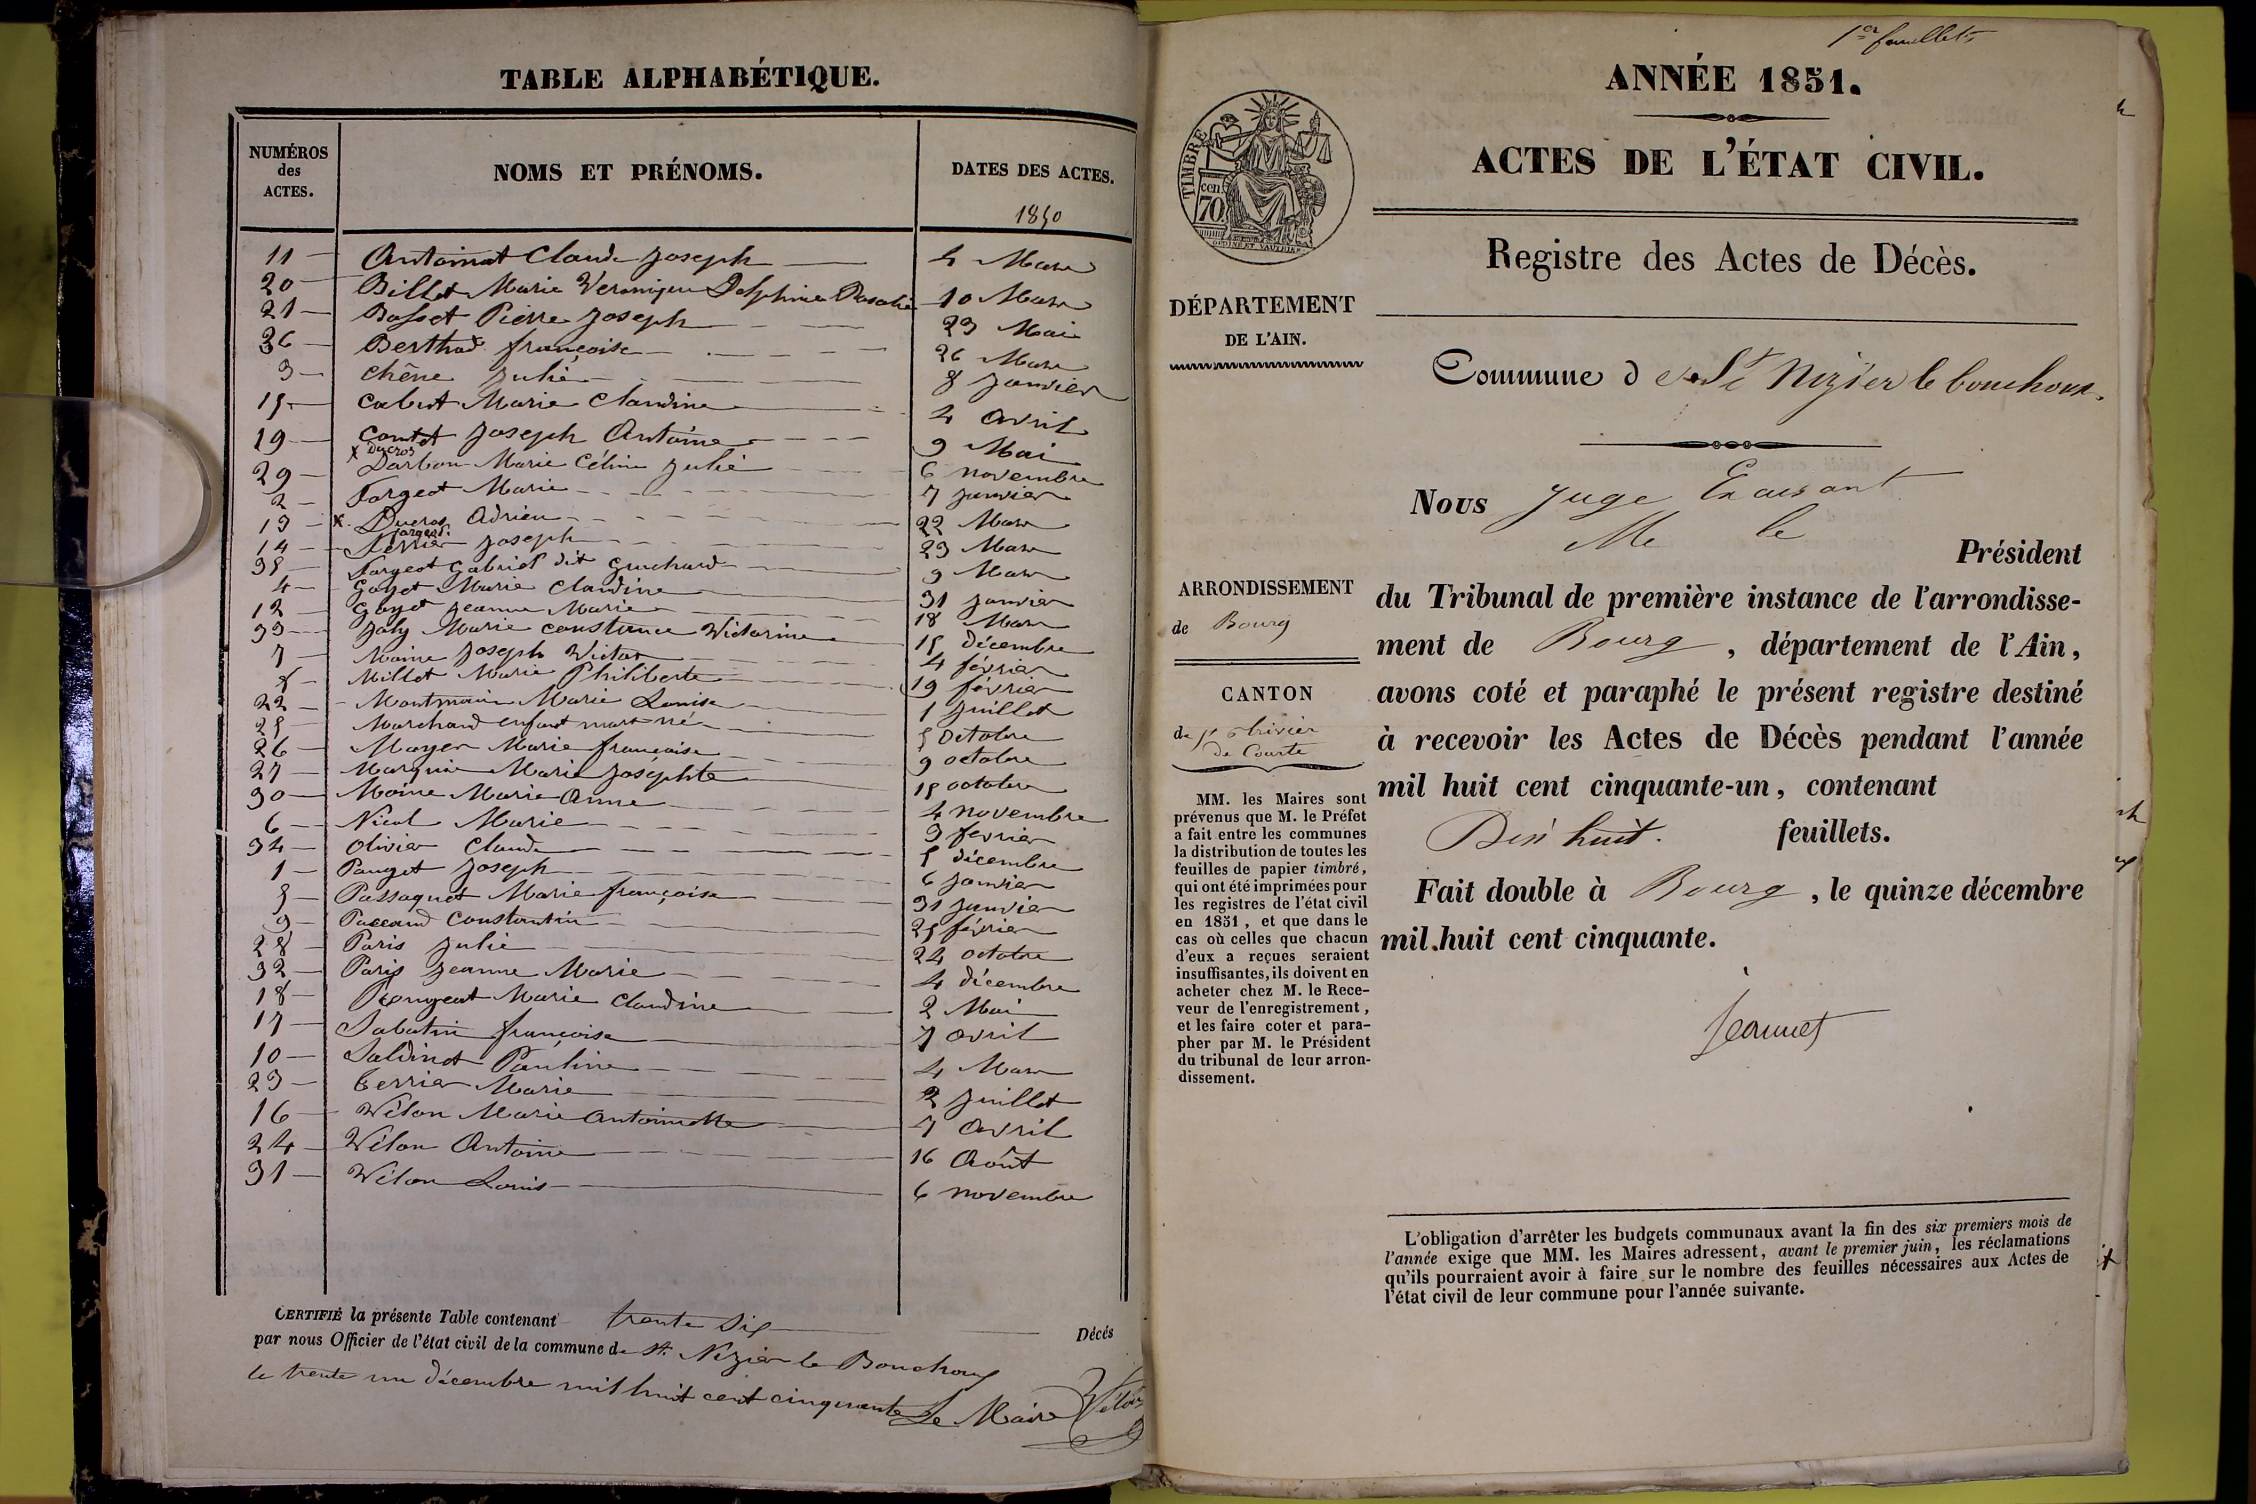 TABLE ALPHABÉTIQUE.
NUMÉROS des ACTES.
NOMS ET PRÉNOMS.
DATES DES ACTES.
1850
11 — Antoinat Claude Joseph — 4 Mars
20 — Billet Marie Veronique Delphine Rosalie — 10 Mars
21 — Bosset Pierre Joseph — 23 Mai
36 — Berthod françoise — 26 Mars
3 — Chêne Julie — 8 Janvier
15 — Cabut Marie Claudine — 4 Avril
19 — Contet Joseph Antoine — 9 Mai
x Ducros
29 — Darbon Marie Céline Julie — 6 novembre
2 — Fargeot Marie — 7 Janvier
13 — x. Ducros Adrien — 22 Mars
fargeot
14 — Ferrier Joseph — 23 Mars
35 — Fargeot Gabriel dit Guichard — 9 Mars
4 — Goyet Marie Claudine — 31 Janvier
12 — Goyet Jeanne Marie — 18 Mars
33 — Joly Marie constance Victorine — 15 décembre
7 — Moine Joseph Victor — 4 février
8 — Millet Marie Philiberte — 19 février
22 — Montmain Marie Louise — 1 Juillet
25 — Marchand enfant mort né — 5 Octobre
26 — Moyer Marie françoise — 9 octobre
27 — Marguin Marie Josephte — 15 octobre
30 — Moine Marie Anne — 4 novembre
6 — Nicol Marie — 3 février
34 — Olivier Claude — 5 décembre
1 — Pauget Joseph — 6 Janvier
5 — Passaquet Marie françoise — 31 Janvier
9 — Paccaud Constantin — 25 février
28 — Paris Julie — 24 octobre
32 — Paris Jeanne Marie — 4 décembre
18 — Pérongeat Marie Claudine — 2 Mai
17 — Sabatin françoise — 7 avril
10 — Saldinot Pauline — 4 Mars
23 — Terrier Marie — 2 Juillet
16 — Vélon Marie Antoinette — 7 Avril
24 — Vélon Antoine — 16 Août
31 — Vélon Louis — 6 novembre
CERTIFIÉ la présente Table contenant trente six Décés
par nous Officier de l'état civil de la commune de St. Nizier le Bouchoux
le trente un décembre mil huit cent cinquante Le Maire Vélon
1er feuillets
ANNÉE 1851.
ACTES DE L'ÉTAT CIVIL.
TIMBRE
cen. 70
Registre des Actes de Décès.
DÉPARTEMENT
DE L'AIN.
Commune d e St Nizier le bouchoux.
Nous Juge Exaisant
Me le
Président
ARRONDISSEMENT
de Bourg
du Tribunal de première instance de l'arrondisse-
ment de Bourg, département de l'Ain,
avons coté et paraphé le présent registre destiné
à recevoir les Actes de Décès pendant l'année
mil huit cent cinquante-un, contenant
Dix huit. feuillets.
Fait double à Bourg, le quinze décembre
mil huit cent cinquante.
Jeannet
CANTON
de St Trivier
de Courte
MM. les Maires sont
prévenus que M. le Préfet
a fait entre les communes
la distribution de toutes les
feuilles de papier timbré,
qui ont été imprimées pour
les registres de l'état civil
en 1851, et que dans le
cas où celles que chacun
d'eux a reçues seraient
insuffisantes, ils doivent en
acheter chez M. le Rece-
veur de l'enregistrement,
et les faire coter et para-
pher par M. le Président
du tribunal de leur arron-
dissement.
L'obligation d'arrêter les budgets communaux avant la fin des six premiers mois de
l'année exige que MM. les Maires adressent, avant le premier juin, les réclamations
qu'ils pourraient avoir à faire sur le nombre des feuilles nécessaires aux Actes de
l'état civil de leur commune pour l'année suivante.